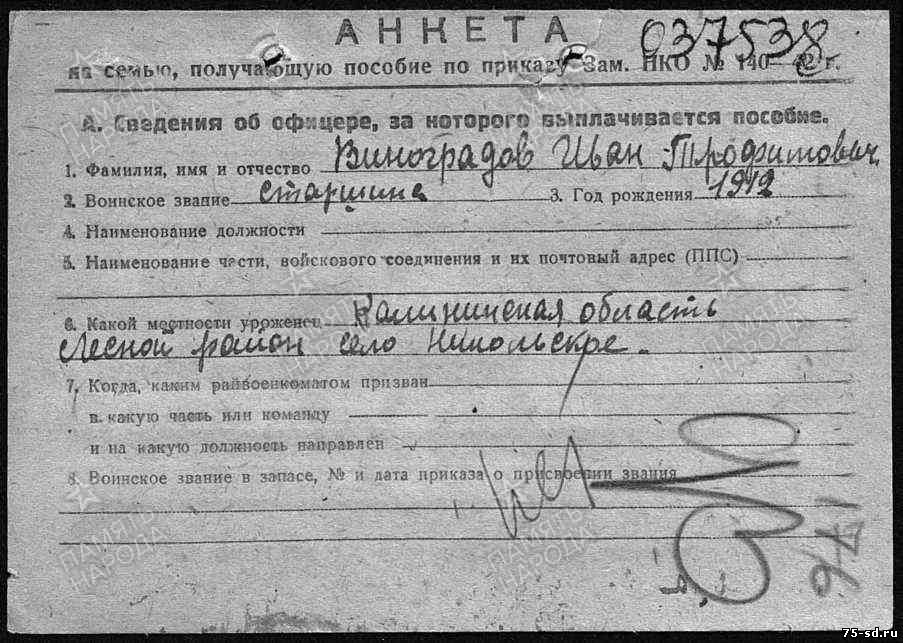 АНКЕТА
037538
на семью, получающую пособие по приказу Зам. НКО № 140— г.
А. Сведения об офицере, за которого выплачивается пособие.
1. Фамилия, имя и отчество Виноградов Иван Трофимович
2. Воинское звание старшина 3. Год рождения 1912
4. Наименование должности
5. Наименование части, войскового соединения и их почтовый адрес (ППС)
6. Какой местности уроженец Калининская область
Лесной район село Никольское.
7. Когда, каким райвоенкоматом призван
в какую часть или команду
и на какую должность направлен
8. Воинское звание в запасе, № и дата приказа о присвоении звания
ПАМЯТЬ НАРОДА
75-sd.ru